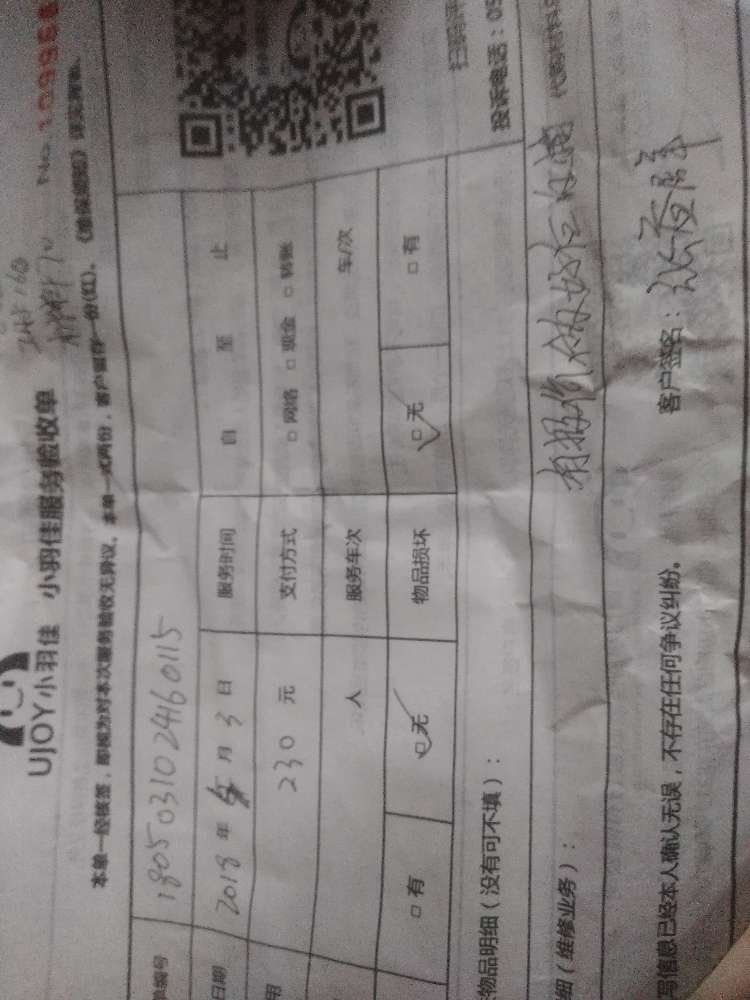 UJOY小羽佳 小羽佳服务验收单
本单一经核签，即视为对本次服务验收无异议。本单一式两份，客户留存一份(红)。《维保细则》详见背面。
单编号 1805031024160115
日期 2018年5月3日 服务时间 自 至 止
用 230元 支付方式 □网络 □现金 □转账
人 服务车次 车/次
□有 □无 物品损坏 □无 □有
物品明细（没有可不填）：
细（维修业务）：
写信息已经本人确认无误，不存在任何争议纠纷。 客户签名：
投诉电话：05